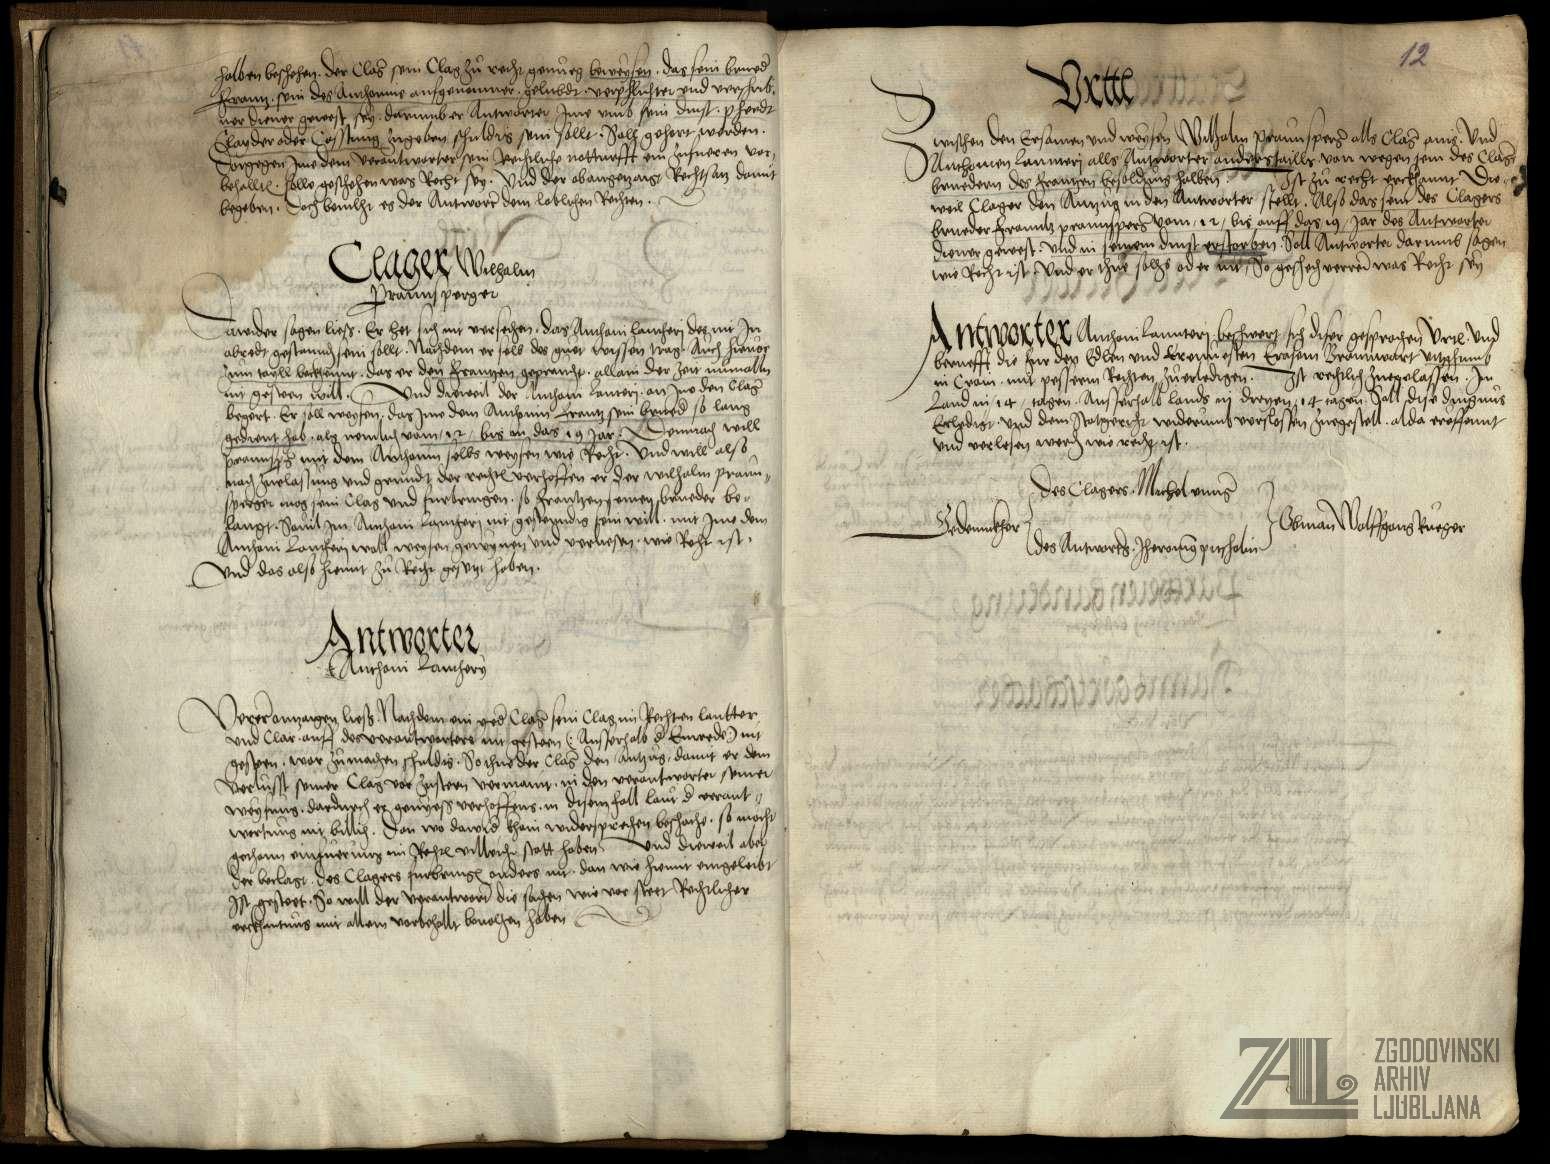 halben beschehen. der Clag sein Clag zu recht genueg beweysen. das sein brueder
Frantz. sein des Anthonius aufgenommer. gelubdt. verpflichter und verschrib-
ner diener gewest sey. darumb er Antworter Ime umb sein dinst. pherdt
Clayder oder Costung zugeben schuldig sein sollt. Soll gehort werden.
Dargegen Ime dem Verantworter sein Rechtliche notturfft ein zufueren vor-
behallt. solle geschehen was Recht sey. Und der obangezaigt Rechtsatz damit
begeben. Doch bevilht es der Antworter dem loblichen Rechten.
Clager Wilhalm
Praunsperger
dawider sagen liess. Er het sich nit versehen. das Anthoni Lantheri des nit In
abredt gestanden sein sollt. Nachdem er selb des guet wissen trag. Auch hievor
ain tayll bekhennt. das er den Frantzen gepraucht. allain der Zeit nimalln
nit gesteen will. Und dieweil der Anthoni Lanteri an Ime den Clager
begert. Er soll weysen. das Ime dem Anthoni Frantz sein brueder so lang
gedient hab. als nemlich vom 12 bis in das 19 Jar. Demnach will
praunsperger mit dem Anthoni selbs weysen wie Recht. Und will also
nach zuelassung und grundt der rechtn verhoffen er der Wilhalm Praun-
sperger mog sein Clag und furbringen. so Frantzen seinen brueder be-
langt. Sovil Im Anthoni Lantheri nit gestenndig sein will. mit Ime dem
Anthoni Lantheri woll weysen gewynnen und verliesen. wie Recht ist.
Und das also hiemit zu Recht gesetzt haben.
Antworter
Anthoni Lanthery
Verrer anzaigen liess. Nachdem ein yeder Clager sein Clag im Rechten lautter
und Clar. auff des verantworters nit gesteen (: Ausserhalb der Einrede :) nit
gesteen. war zumachen schuldig. So thue der Clager den Anzug. damit er dem
Verlusst seiner Clag vor zusteen vermaint. in den verantworter seiner
weysung. dardurch er gewyss verhoffens. in disem fall laut der verant-
wortung nit billich. Dan wo dawider khain widersprechen beschache. so mocht
gethann einfuerung im Rechten villeicht statt haben. Und dieweil aber
der beclagt. des Clagers furbringen anders nit. dan wie hiemit eingeleibt
Ist gesteet. So will der verantworter die sachen wie vor steet Rechtlicher
erkhantnus mit allem vorbehallt bevolhen haben
12
Urttl
Zwischen den Ersamen und weysen Wilhalm Praunsperger alls Clager ains. Und
Anthonien Lannteri alls Antworter anderstaills von wegen sein des Clagers
bruedern des Frantzen besoldung halben. Ist zu recht erkhannt. Die-
weil Clager den Anzug in den Antworter stellt. Also das sein des Clagers
brueder Frantz praunsperger vom 12 bis auff das 19 Jar des Antworter
diener gewest. und in seinem dinst erstorben. Soll Antworter darumb sagen
wie Recht ist. Und er thue solhs oder nit. So geschech verrer was Recht sey
Antworter Anthoni Lannteri beschwert sich diser gesprochen Urtl. Und
beruefft die fur den Edlen und Erenvessten Erasem Braunwart vitzthumb
in Crain. mit pesserm Rechten zuerledigen. Ist rechtlich zuegelassen. In
Land in 14 tagen. Ausserhalb lands in dreyen 14 tagen. Soll dise dingnus
Erledigt. und dem Statgericht widerumb verslossen zuegestelt. alda eröffennt
und verlesen werden wie recht ist.
des Clagers. Michel
Gedennckher
des Antworters. Jheronimus pitscholin
Obman Wolffgang Rueger
ZAL
ZGODOVINSKI
ARHIV
LJUBLJANA